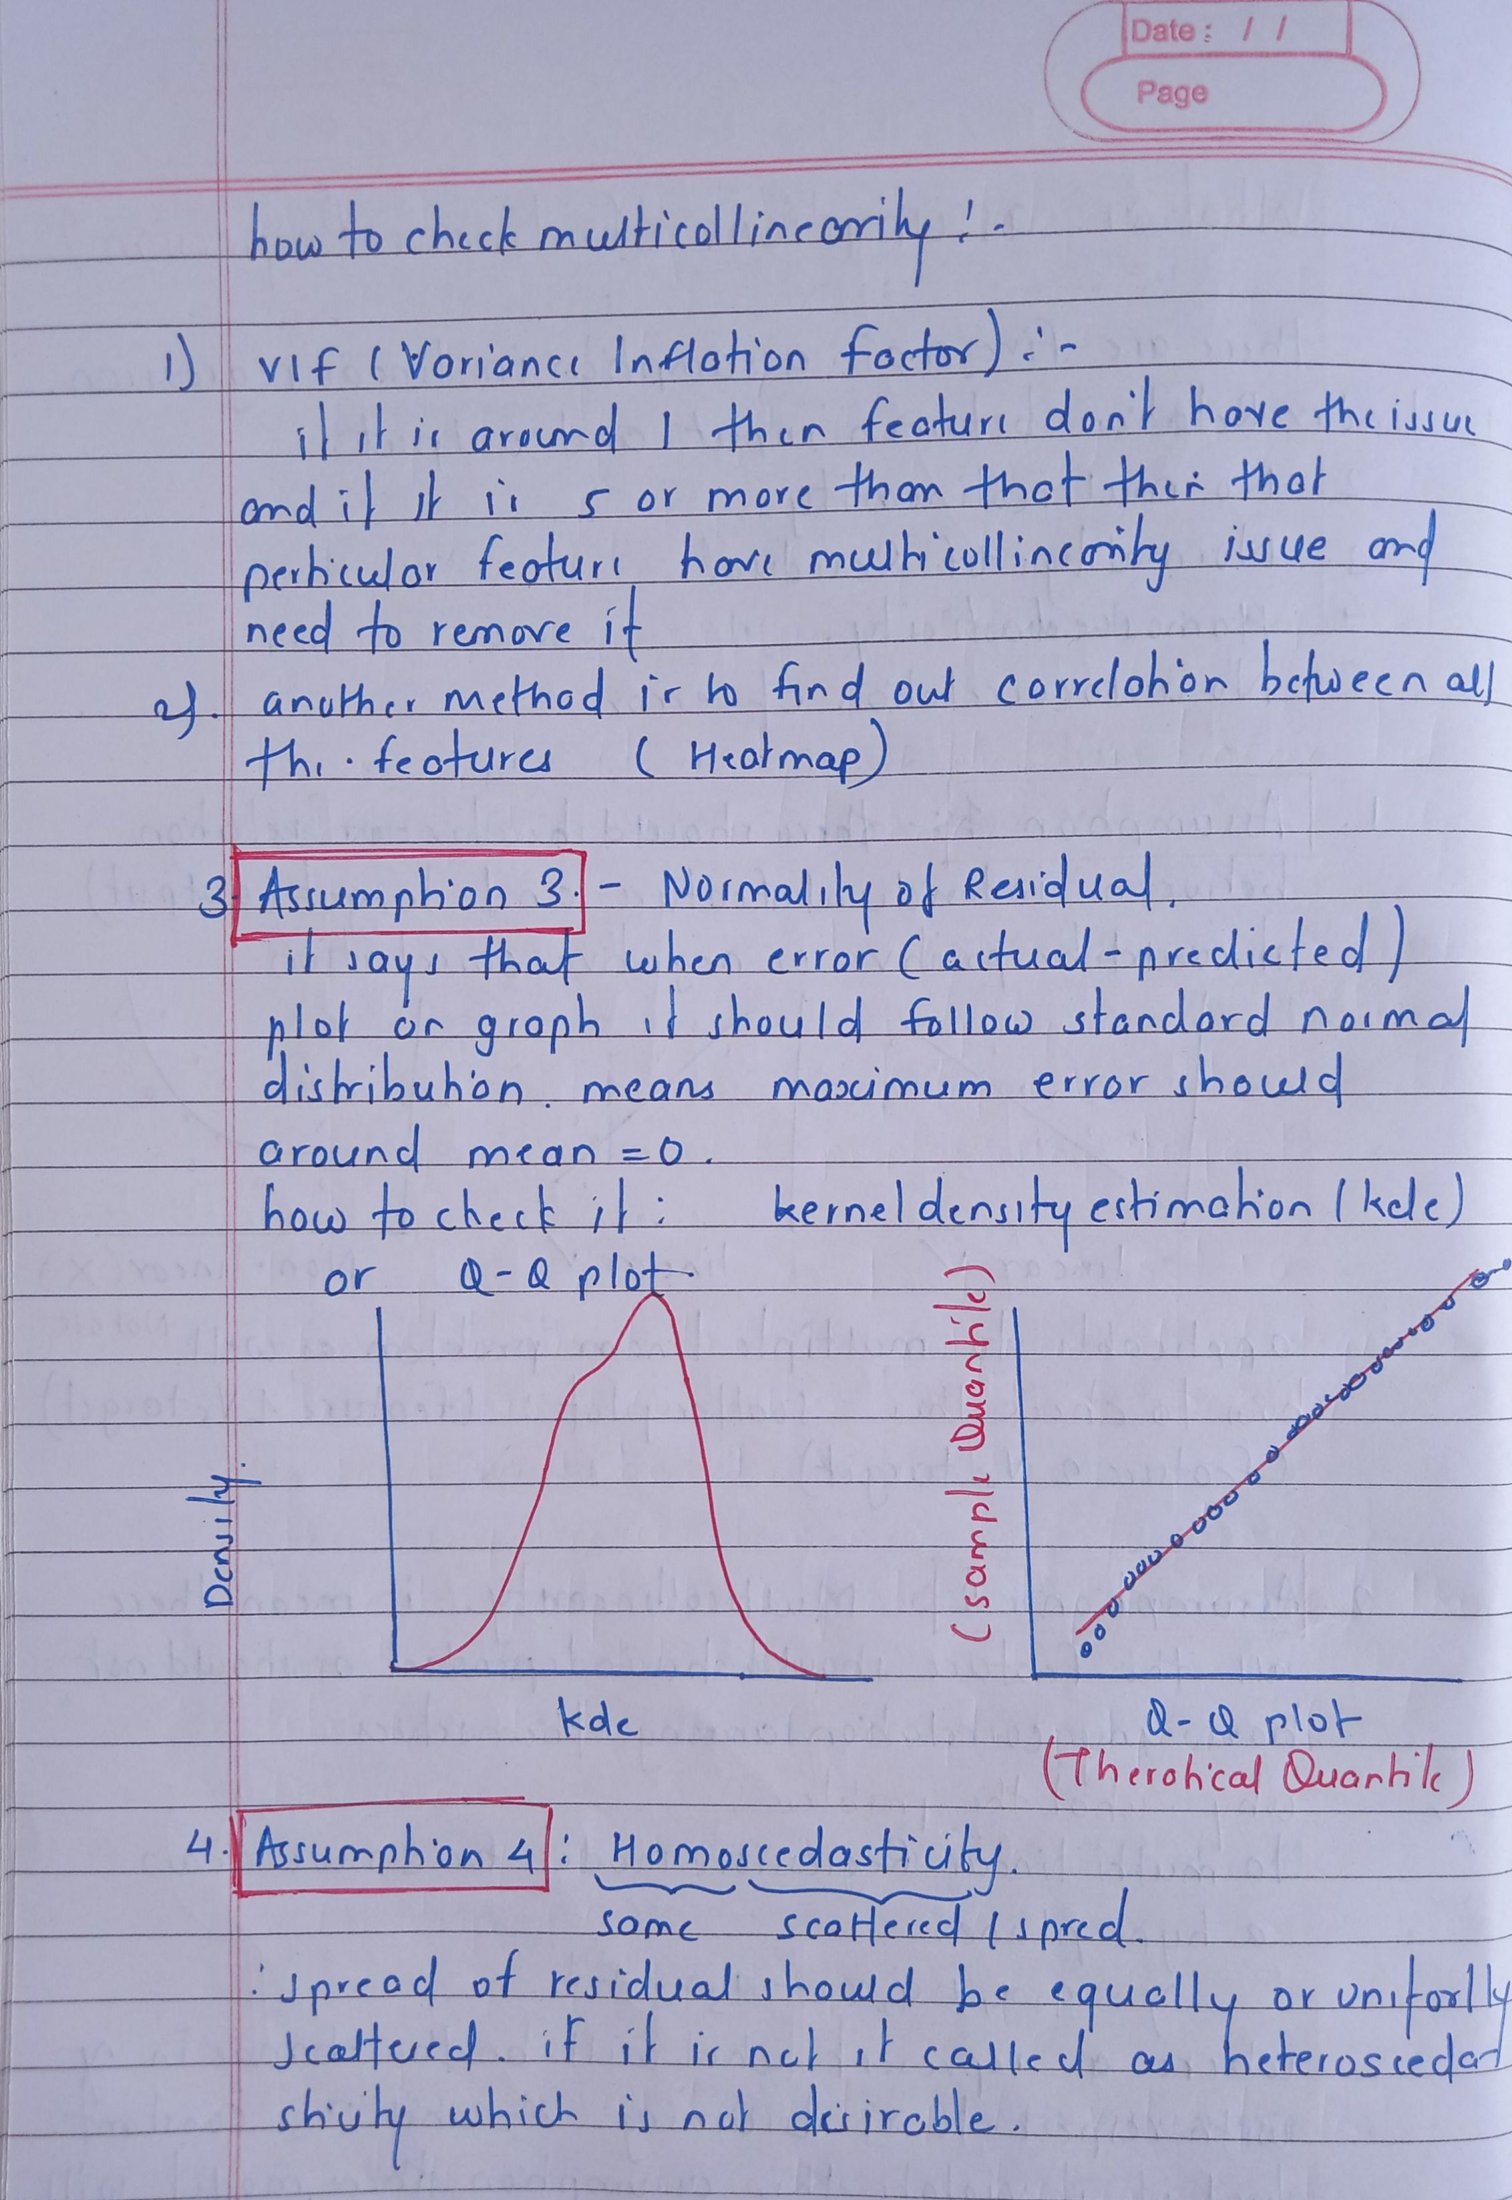 Date : / /
Page
how to check multicollinearity :-
1) VIF (Variance Inflation Factor) :-
if it is around 1 then feature don't have the issue
and if it is 5 or more than that then that
perticular feature have multicollinearity issue and
need to remove it
2). another method is to find out correlation between all
the features (Heatmap)
3 Assumption 3. - Normality of Residual.
it says that when error (actual - predicted)
plot on graph it should follow standard normal
distribution. means maximum error should
around mean = 0.
how to check it : kernel density estimation (kde)
or Q-Q plot
Density.
kde
(sample Quantile)
Q-Q plot
(Therotical Quantile)
4. Assumption 4 : Homoscedasticity.
same scattered / spred.
: spread of residual should be equally or uniforlly
scattered. if it is not it called as heteroscedad
sticity which is not desirable.